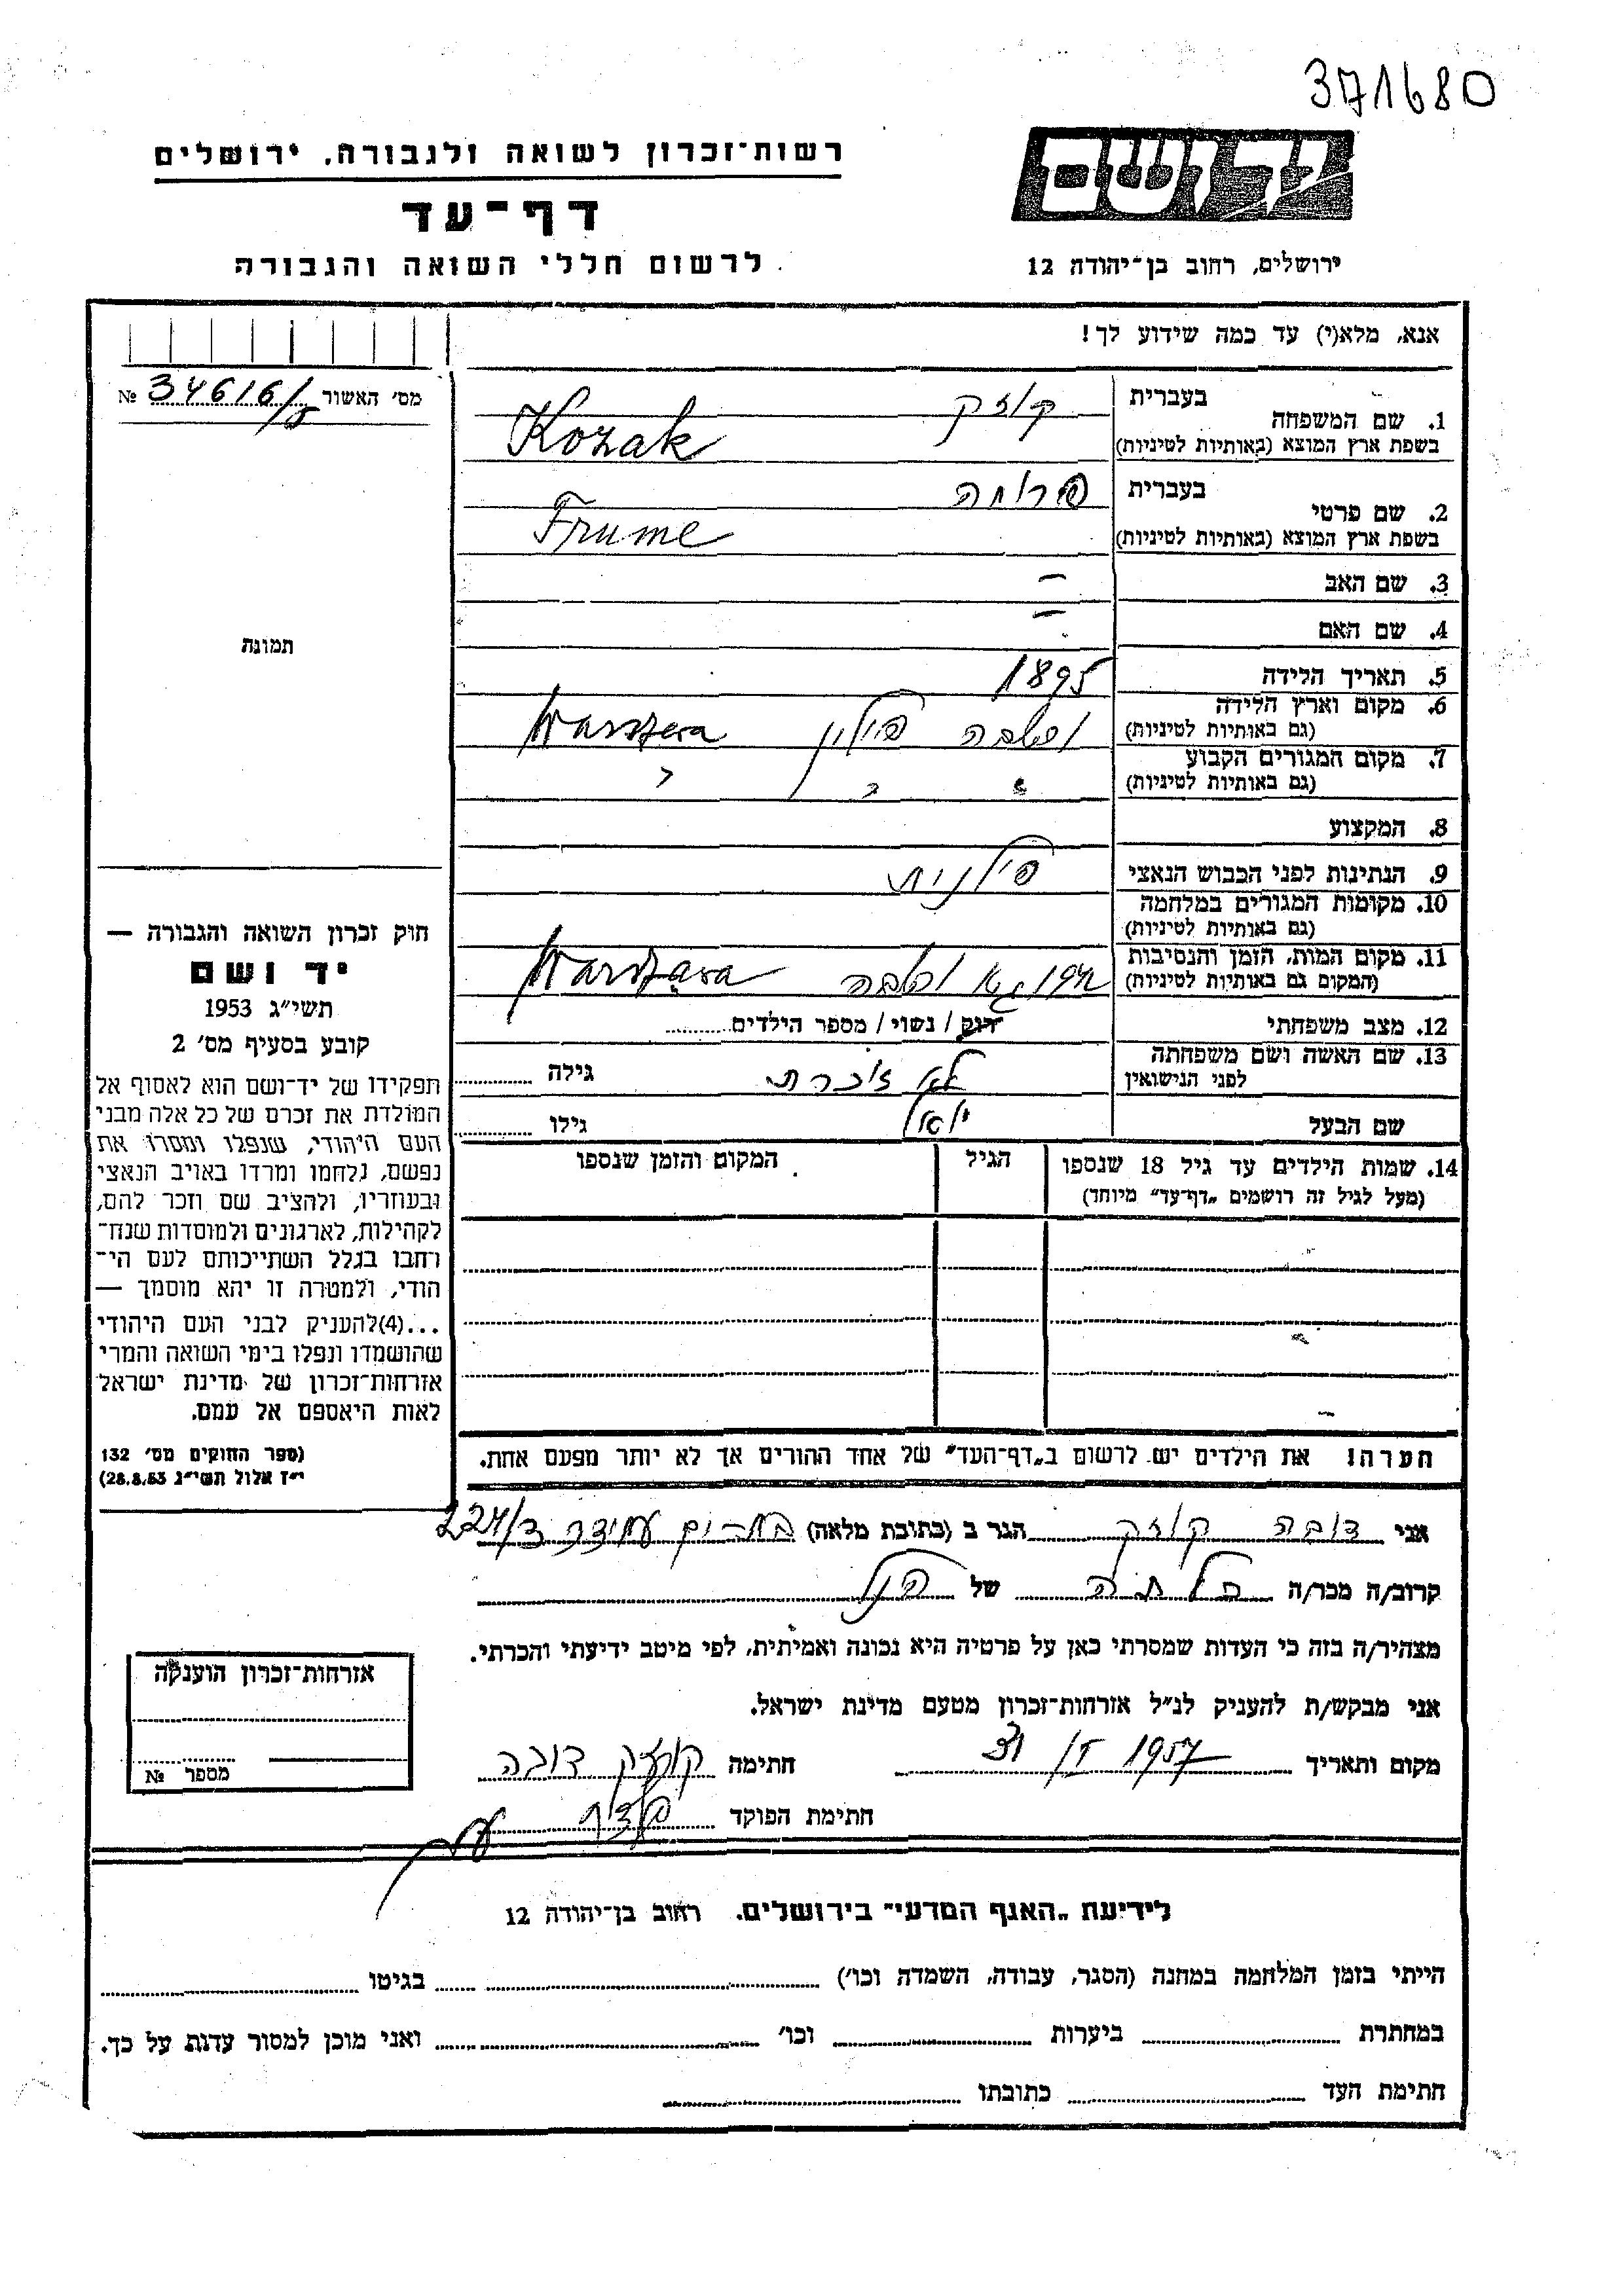 371680
ידושם
רשות־זכרון לשואה ולגבורה. ירושלים
דף־עד
לרשום חללי השואה והגבורה
ירושלים, רחוב בן־יהודה 12
אנא, מלא(י) עד כמה שידוע לך!
מס׳ האשור 34616/ № 
1. שם המשפחה
בעברית קוזק
בשפת ארץ המוצא (באותיות לטיניות) Kozak
2. שם פרטי
בעברית פרומה
בשפת ארץ המוצא (באותיות לטיניות) Frume
3. שם האב –
4. שם האם –
תמונה
5. תאריך הלידה 1895
6. מקום וארץ הלידה (גם באותיות לטיניות) ורשבה פולין Warszawa
7. מקום המגורים הקבוע (גם באותיות לטיניות)
8. המקצוע
9. הנתינות לפני הכבוש הנאצי פולנית
10. מקומות המגורים במלחמה (גם באותיות לטיניות)
11. מקום המות, הזמן והנסיבות (המקום גם באותיות לטיניות) ורשבה Warszawa
12. מצב משפחתי רוק / נשוי / מספר הילדים
13. שם האשה ושם משפחתה לפני הנישואין לא זוכרת גילה
שם הבעל יואל גילו
14. שמות הילדים עד גיל 18 שנספו
(מעל לגיל זה רושמים „דף־עד״ מיוחד)
הגיל
המקום והזמן שנספו
חוק זכרון השואה והגבורה —
יד ושם
תשי״ג 1953
קובע בסעיף מס׳ 2
תפקידו של יד־ושם הוא לאסוף אל
המולדת את זכרם של כל אלה מבני
העם היהודי, שנפלו ומסרו את
נפשם, נלחמו ומרדו באויב הנאצי
ובעוזריו, ולהציב שם וזכר להם,
לקהילות, לארגונים ולמוסדות שנח־
רחבו בגלל השתייכותם לעם הי־
הודי, ולמטרה זו יהא מוסמך —
...(4)להעניק לבני העם היהודי
שהושמדו ונפלו בימי השואה והמרי
אזרחות־זכרון של מדינת ישראל
לאות היאספם אל עמם.
(ספר החוקים מס׳ 132
י״ז אלול תשי״ג 28.8.53)
הערה! את הילדים יש לרשום ב„דף־העד״ של אחד ההורים אך לא יותר מפעם אחת.
אני דובה קוזק הגר ב (כתובת מלאה) עמידר
קרוב/ה מכר/ה כלתה של הנ״ל
מצהיר/ה בזה כי העדות שמסרתי כאן על פרטיה היא נכונה ואמיתית, לפי מיטב ידיעתי והכרתי.
אני מבקש/ת להעניק לנ״ל אזרחות־זכרון מטעם מדינת ישראל.
מקום ותאריך 1957 חתימה קוזק דובה
חתימת הפוקד
אזרחות־זכרון הוענקה
מספר №
לידיעת „האגף המדעי״ בירושלים. רחוב בן־יהודה 12
הייתי בזמן המלחמה במחנה (הסגר, עבודה, השמדה וכו׳) בגיטו
במחתרת ביערות וכו׳ ואני מוכן למסור עדות על כך.
חתימת העד כתובתו